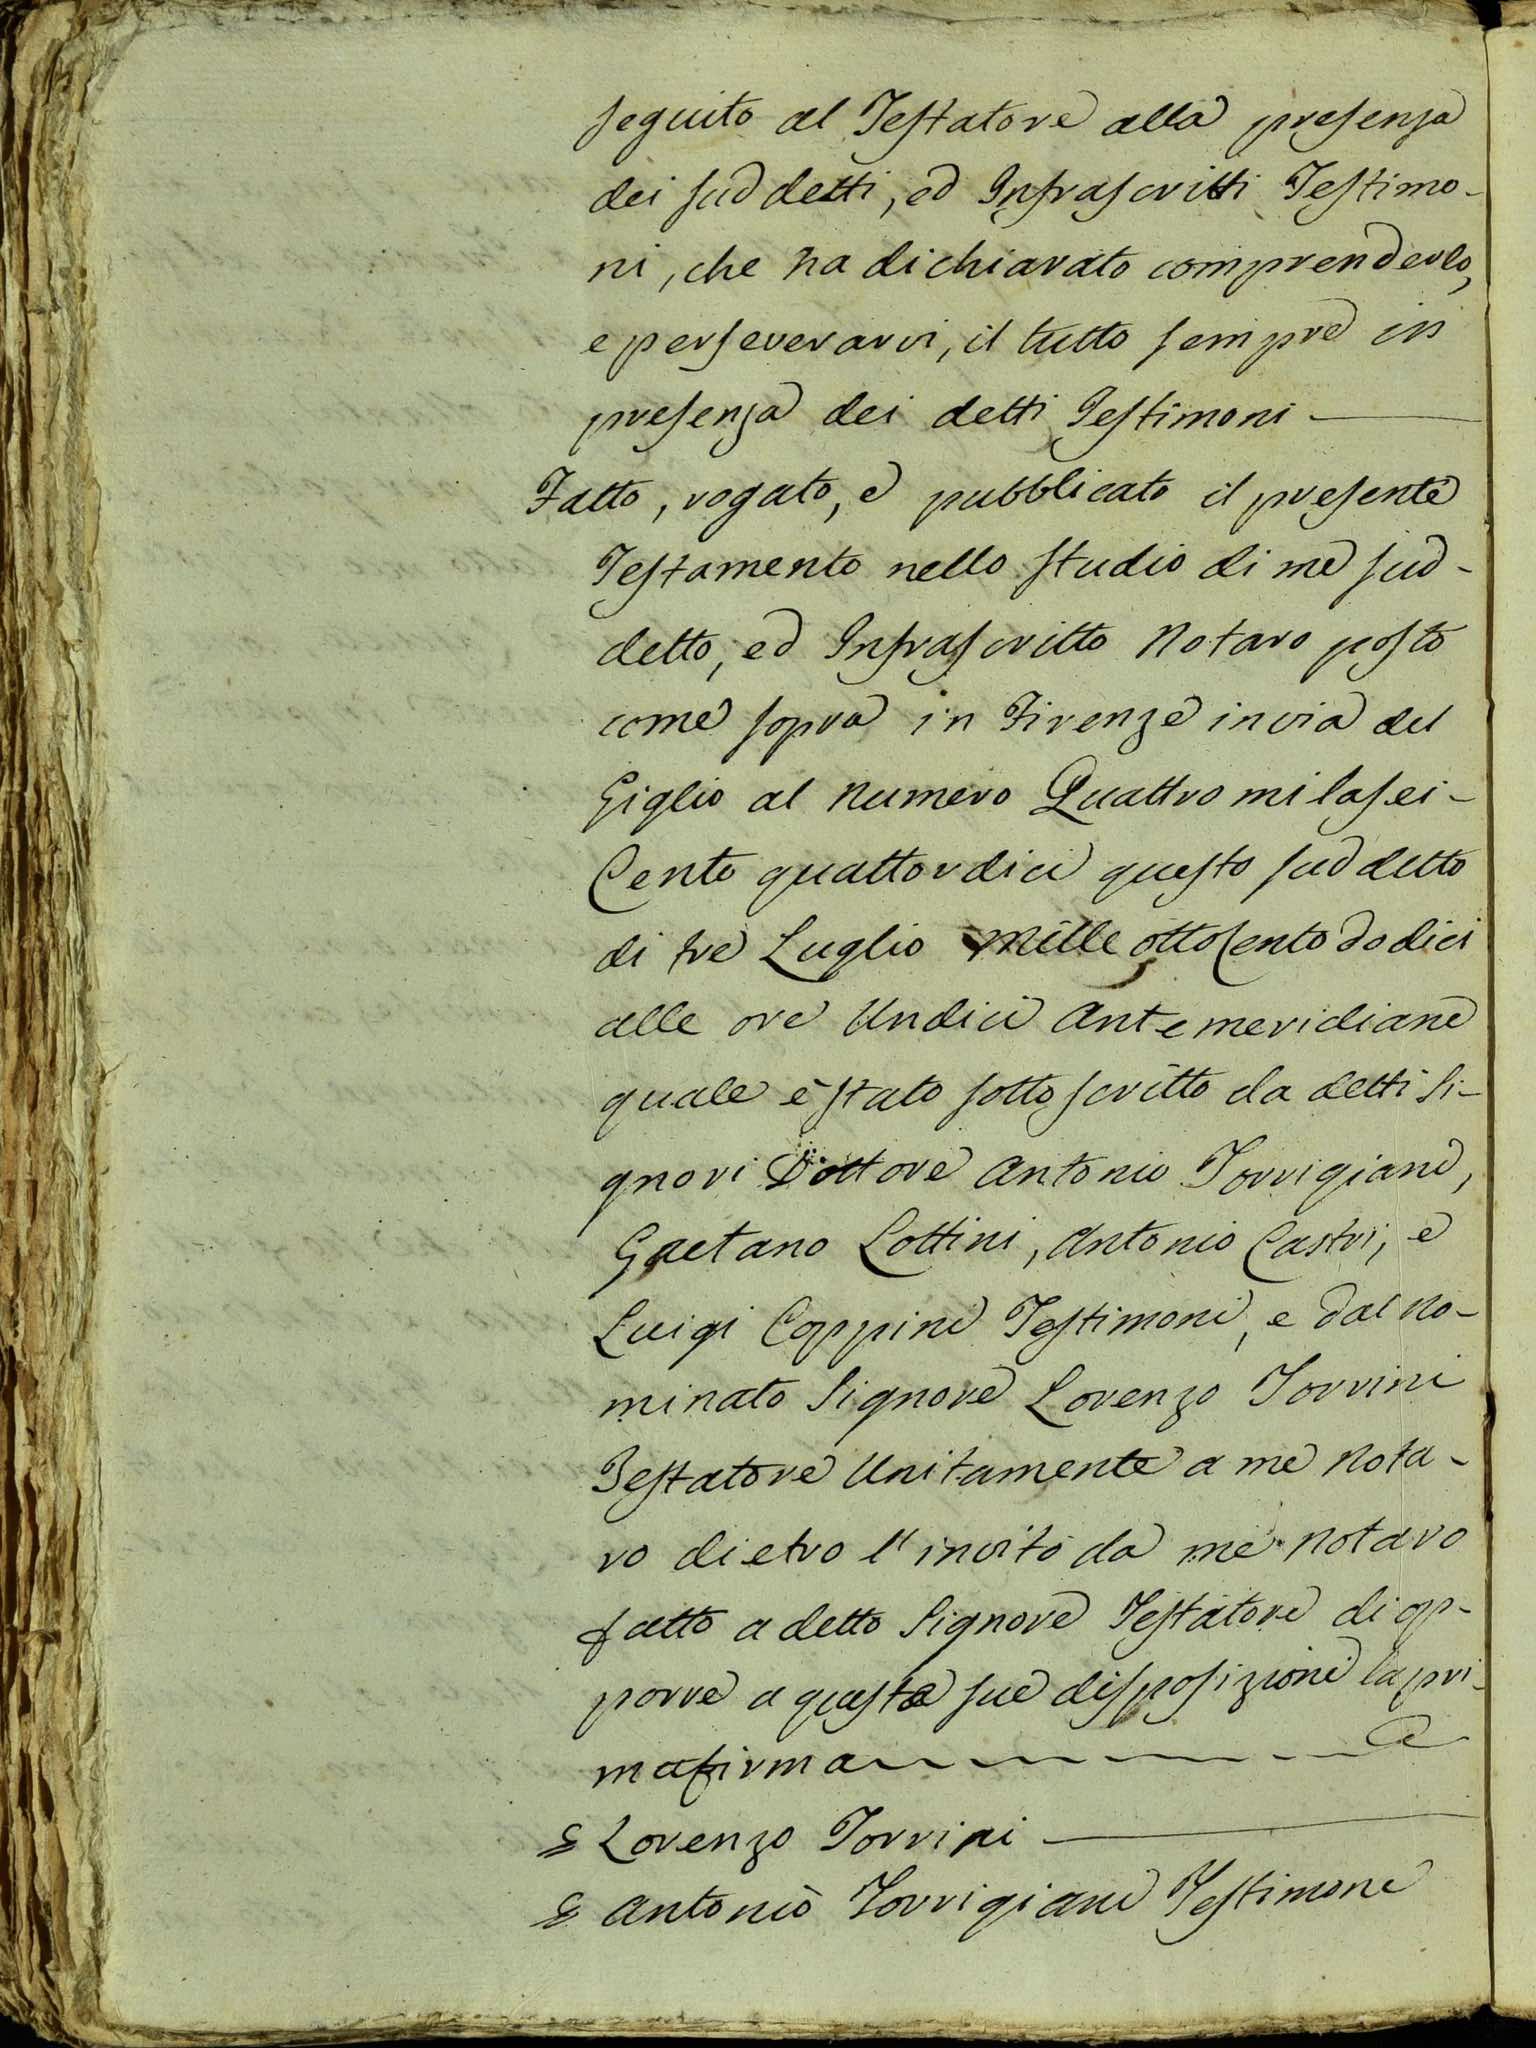 seguito al Testatore alla presenza
dei suddetti, ed Infrascritti Testimo-
ni, che ha dichiarato comprenderlo,
e perseverarvi, il tutto sempre in
presenza dei detti Testimoni
Fatto, rogato, e pubblicato il presente
Testamento nello studio di me sud-
detto, ed Infrascritto Notaro posto
come sopra in Firenze in via del
Giglio al Numero Quattro milasei-
Cento quattordici questo suddetto
di tre Luglio Mille ottoCento dodici
alle ore Undici Antemeridiane
quale è stato sottoscritto da detti Si-
gnori Dottore Antonio Torrigiani,
Gaetano Lottini, Antonio Castri, e
Luigi Coppini Testimoni, e dal No-
minato Signore Lorenzo Torrini
Testatore Unitamente a me Nota-
ro dietro l'invito da me Notaro
fatto a detto Signore Testatore di op-
porre a queste sue disposizioni la pri-
ma firma
Lorenzo Torrini
Antonio Torrigiani Testimone